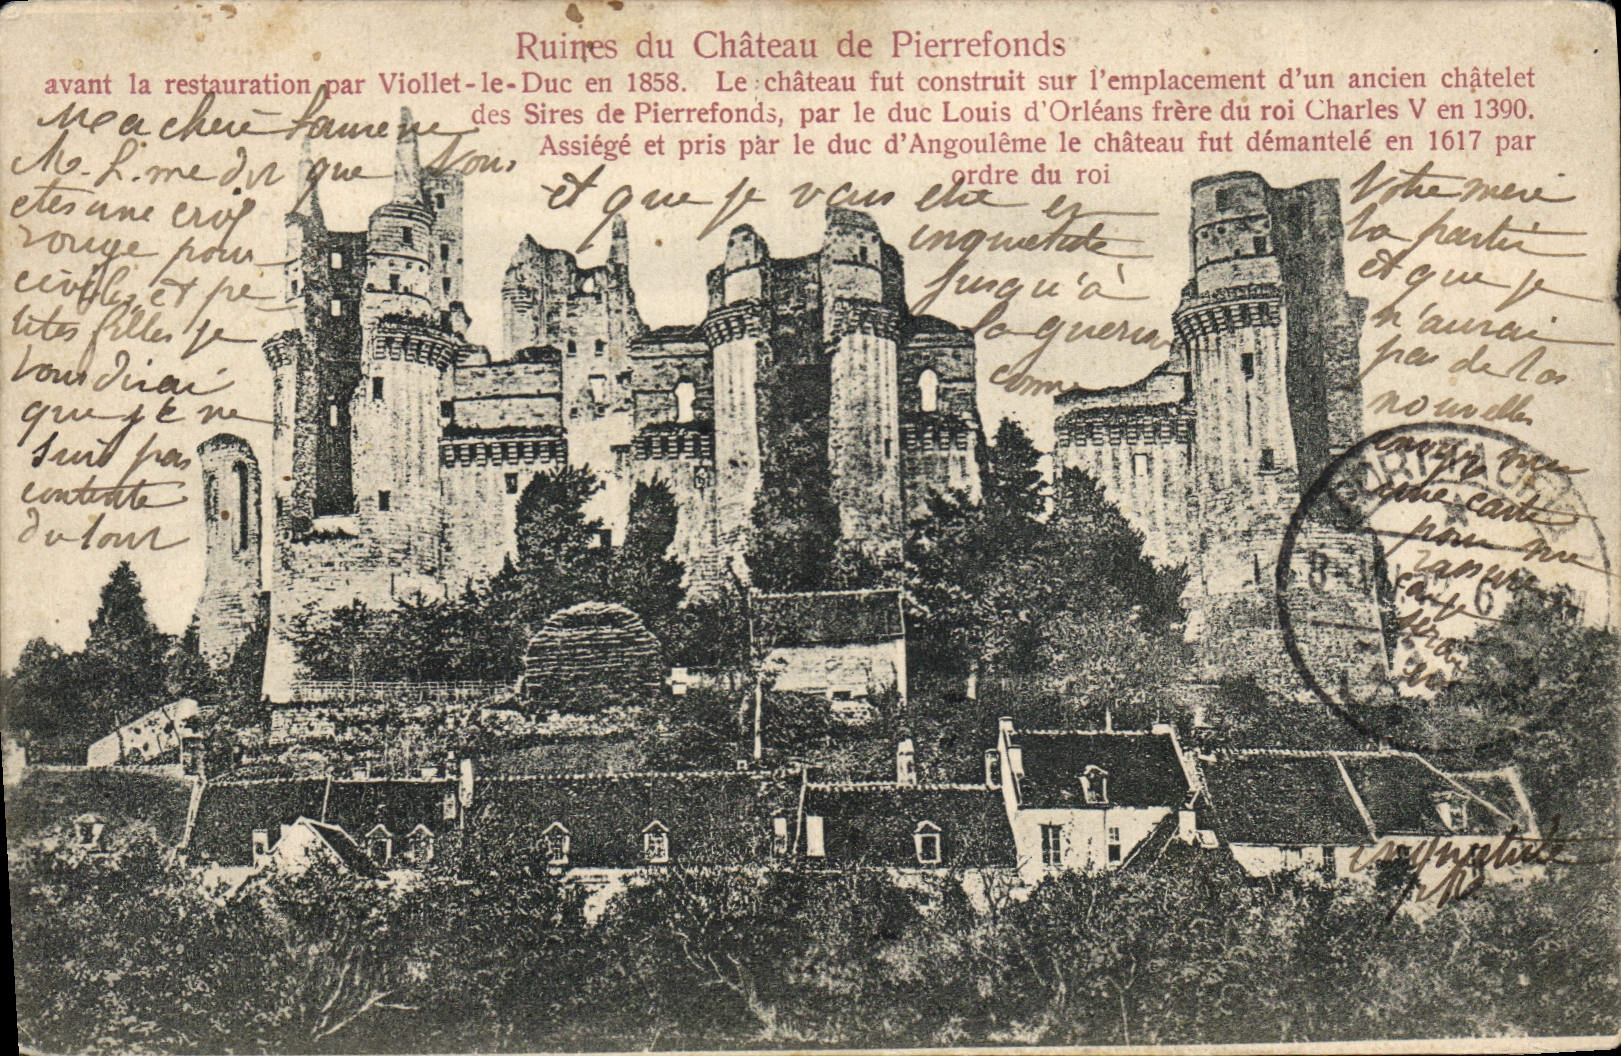 Ruines du Château de Pierrefonds
avant la restauration par Viollet-le-Duc en 1858. Le château fut construit sur l'emplacement d'un ancien châtelet
des Sires de Pierrefonds, par le duc Louis d'Orléans frère du roi Charles V en 1390.
Assiégé et pris par le duc d'Angoulême le château fut démantelé en 1617 par
ordre du roi
Ma chere
M. L. me dit que vous
etes une croix
rouge pour
civils et pe
tites filles je
vous dirai
que je ne
suis pas
contente
du tout
et que je vous
inquietude
jusqu'à
la guerre
comme
votre mere
la partir
et que je
n'aurai
pas de vos
nouvelles
envoyez moi
une carte
pour me
rassurer
car je
serai
en
inquietude